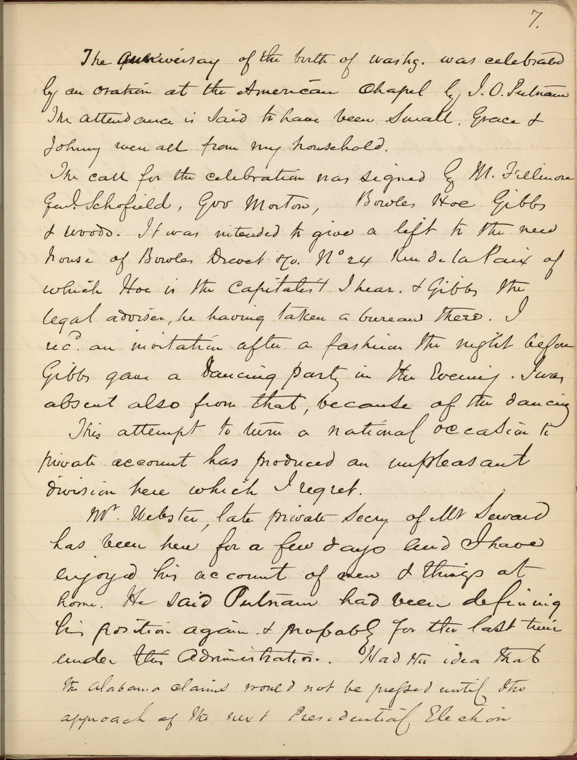 7.
The anniversay of the birth of washg. was celebrated
by an oration at the American Chapel by J. O. Putnam
The attendance is said to have been small. Grace &
Johnny went all from my household.
The call for the celebration was signed by M. Fillmore
Genl. Schofield, Gov Morton, Bowles Hoe Gibbs
& woods. It was intended to give a lift to the new
house of Bowles Drevet &Co. No 24 Rue de la Paix of
which Hoe is the Capitalist I hear. & Gibbs the
legal adviser, he having taken a bureau there. I
recd. an invitation after a fashion the night before
Gibbs gave a Dancing party in the Evening. I was
absent also from that, because of the dancing
This attempt to turn a national occasion to
private account has produced an unpleasant
division here which I regret.
Mr. Webster, late private Secry of Mr Seward
has been here for a few days and I have
enjoyed his account of men & things at
home. He said Putnam had been defining
his position again & probably for the last time
under this Administration. Had the idea that
the Alabama claims would not be pressed until the
approach of the next Presidential Election